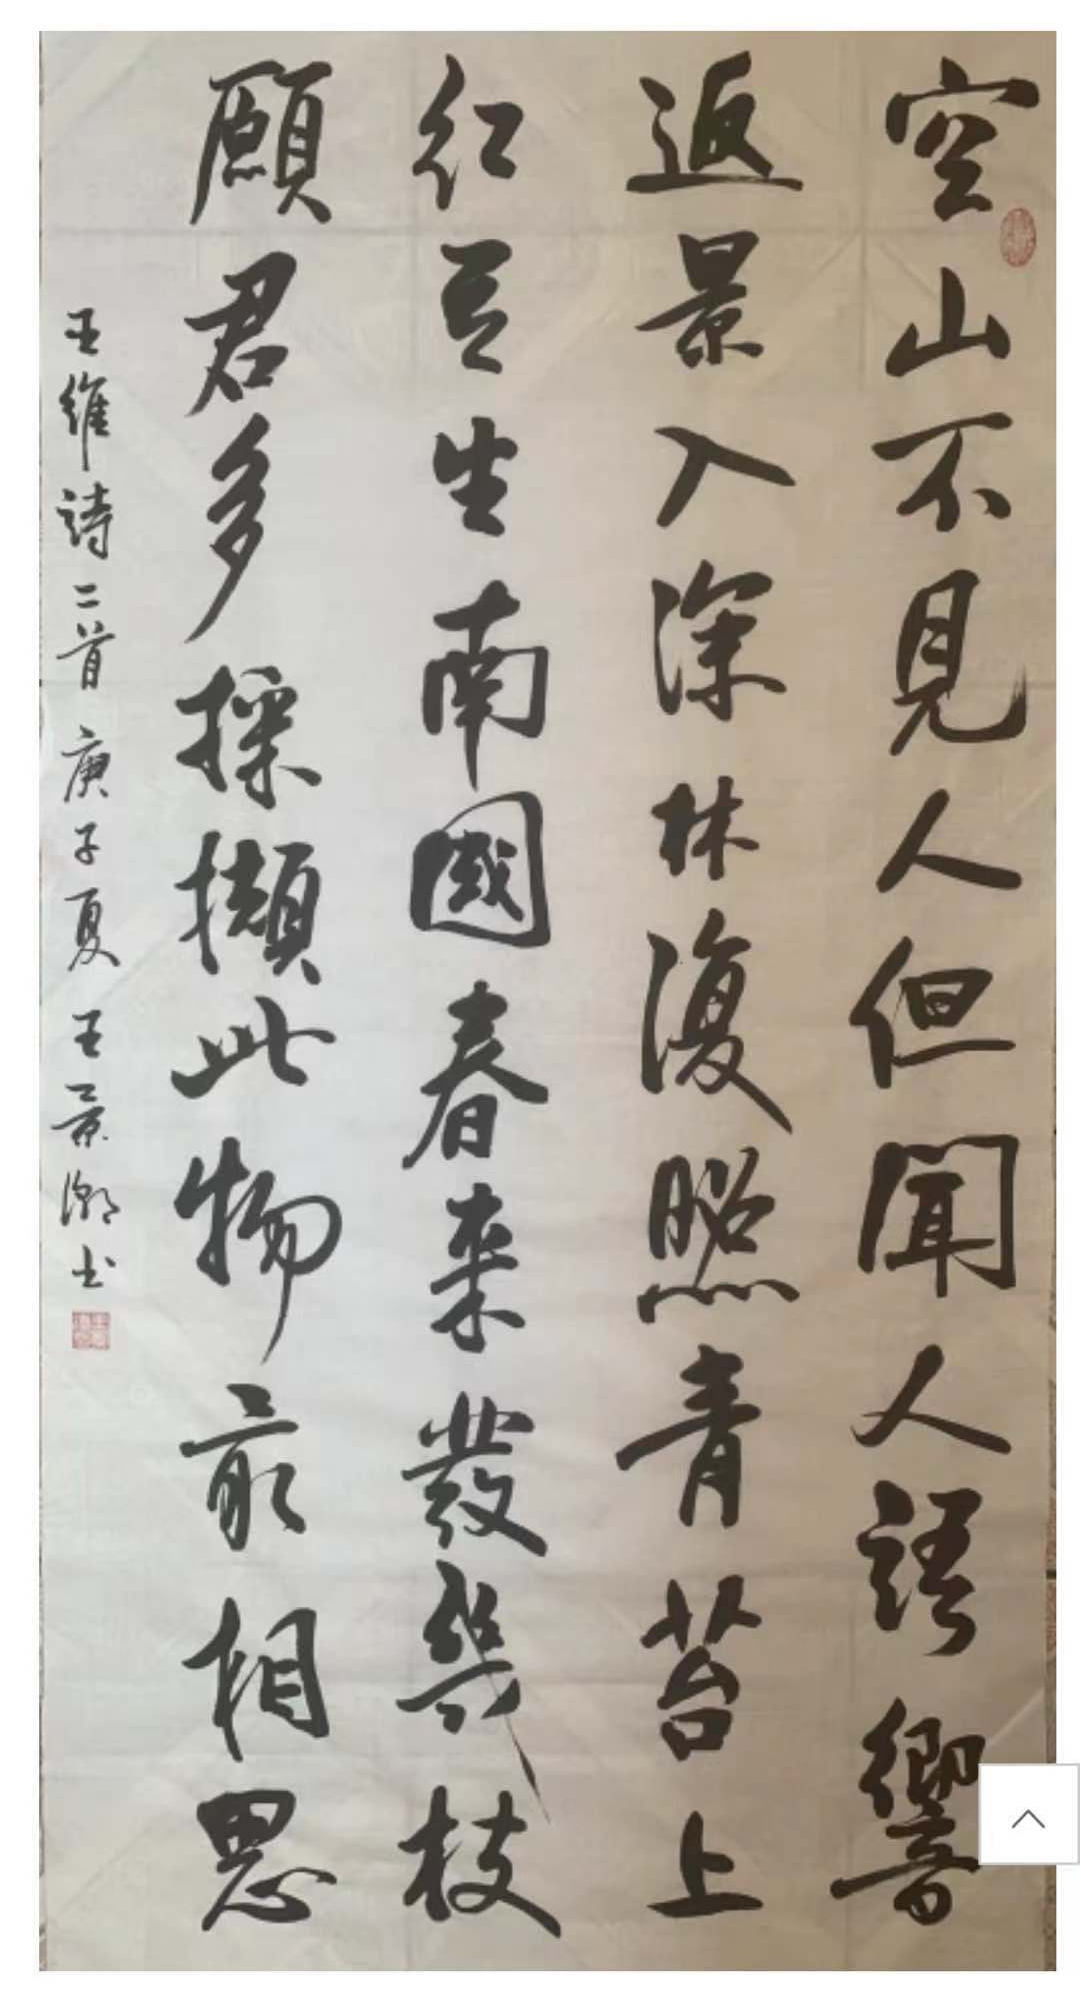 空山不見人但聞人語響
返景入深林復照青苔上
紅豆生南國春來發幾枝
願君多採擷此物最相思
王維詩二首 庚子夏 王景瀚书